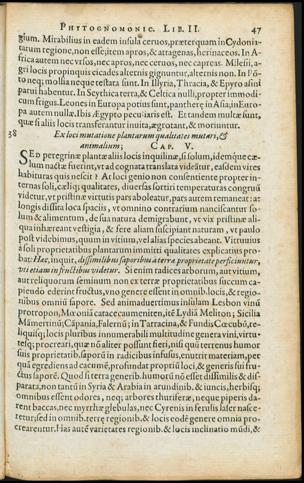 PHYTOGNOMONIC. LIB. II. 47
gium. Mirabilius in eadem insula ceruos, præterquam in Cydonia-
tarum regione, non esse; item apros, & atragenas, herinaceos. In A-
frica autem nec vrsos, nec apros, nec ceruos, nec capreas. Milesii, a-
gri locis propinquis cicades alternis gignuntur, alternis non. In Pō-
to neq; mollia neque testata sunt. In Illyria, Thracia, & Epyro asini
parui habentur. In Scythica terra, & Celtica nulli, propter immodi-
cum frigus. Leones in Europa potius sunt, pantheræ in Asia, in Euro-
pa autem nullæ. Ibis Ægypto pecuiaris est. Et tandem multæ sunt,
quæ si aliis locis transferantur inuita, ægrotant, & moriuntur.
38 Ex loci mutatione plantarum qualitates mutari, &
animalium; CAP. V.
SED peregrinæ plantæ aliis locis inquilinæ, si solum, idemque cæ-
lum nactæ fuerint, vt ad cognata translata videātur, easdem vires
habituras quis nesciit? At loci genio non consentiente propter in-
ternas soli, cæliq; qualitates, diuersas sortiri temperaturas congruū
videtur, vt pristinæ virtutis pars aboleatur, pars autem remaneat: at
longis dissita loca spaciis, vt omnino contrarium nanciscantur so-
lum & alimentum, de sua natura demigrabunt, vt vix pristinæ ali-
qua inhæreant vestigia, & fere aliam suscipiant naturam, vt paulo
post videbimus, quum in vitium, vel alias species abeant. Virtutius
à soli proprietatibus plantarum immitti qualitates explicatius pro-
bat: Hæc, inquit, dissimilibus saporibus à terræ proprietate perficiuntur,
vti etiam in fructibus videtur. Si enim radices arborum, aut vitium,
aut reliquorum seminum non ex terræ proprietatibus succum ca-
piendo ederint fructus, vno genere essent in omnib. locis, & regio-
nibus omniū sapore. Sed animaduertimus insulam Lesbon vinū
protropon, Mæoniā catacecaumeniten, itē Lydiā Meliton; Sicilia
Mamertinū; Cāpania, Falernū; in Tarracina, & Fundis Cæcubū, re-
liquisq; locis pluribus innumerabili multitudine genera vini, virtu-
tesq; procreari, quæ nō aliter possunt fieri, nisi quū terrenus humor
suis proprietatib. saporū in radicibus infusis, enutrit materiam, per
quā egrediens ad cacumē, profundat propriū loci, & generis sui fru-
ctus saporē. Quod si terra generib. humorū nō esset dissimilis & dis-
parata, non tantū in Syria & Arabia in arundinib. & iuncis, herbisq;
omnibus essent odores, neq; arbores thuriferæ, neque piperis da-
rent baccas, nec myrrhæ glebulas, nec Cyrenis in ferulis laser nasce-
retur; sed in omnib. terræ regionib. & locis eodē genere omnia pro-
crearentur. Has autē varietates regionib. & locis inclinatio mūdi, &